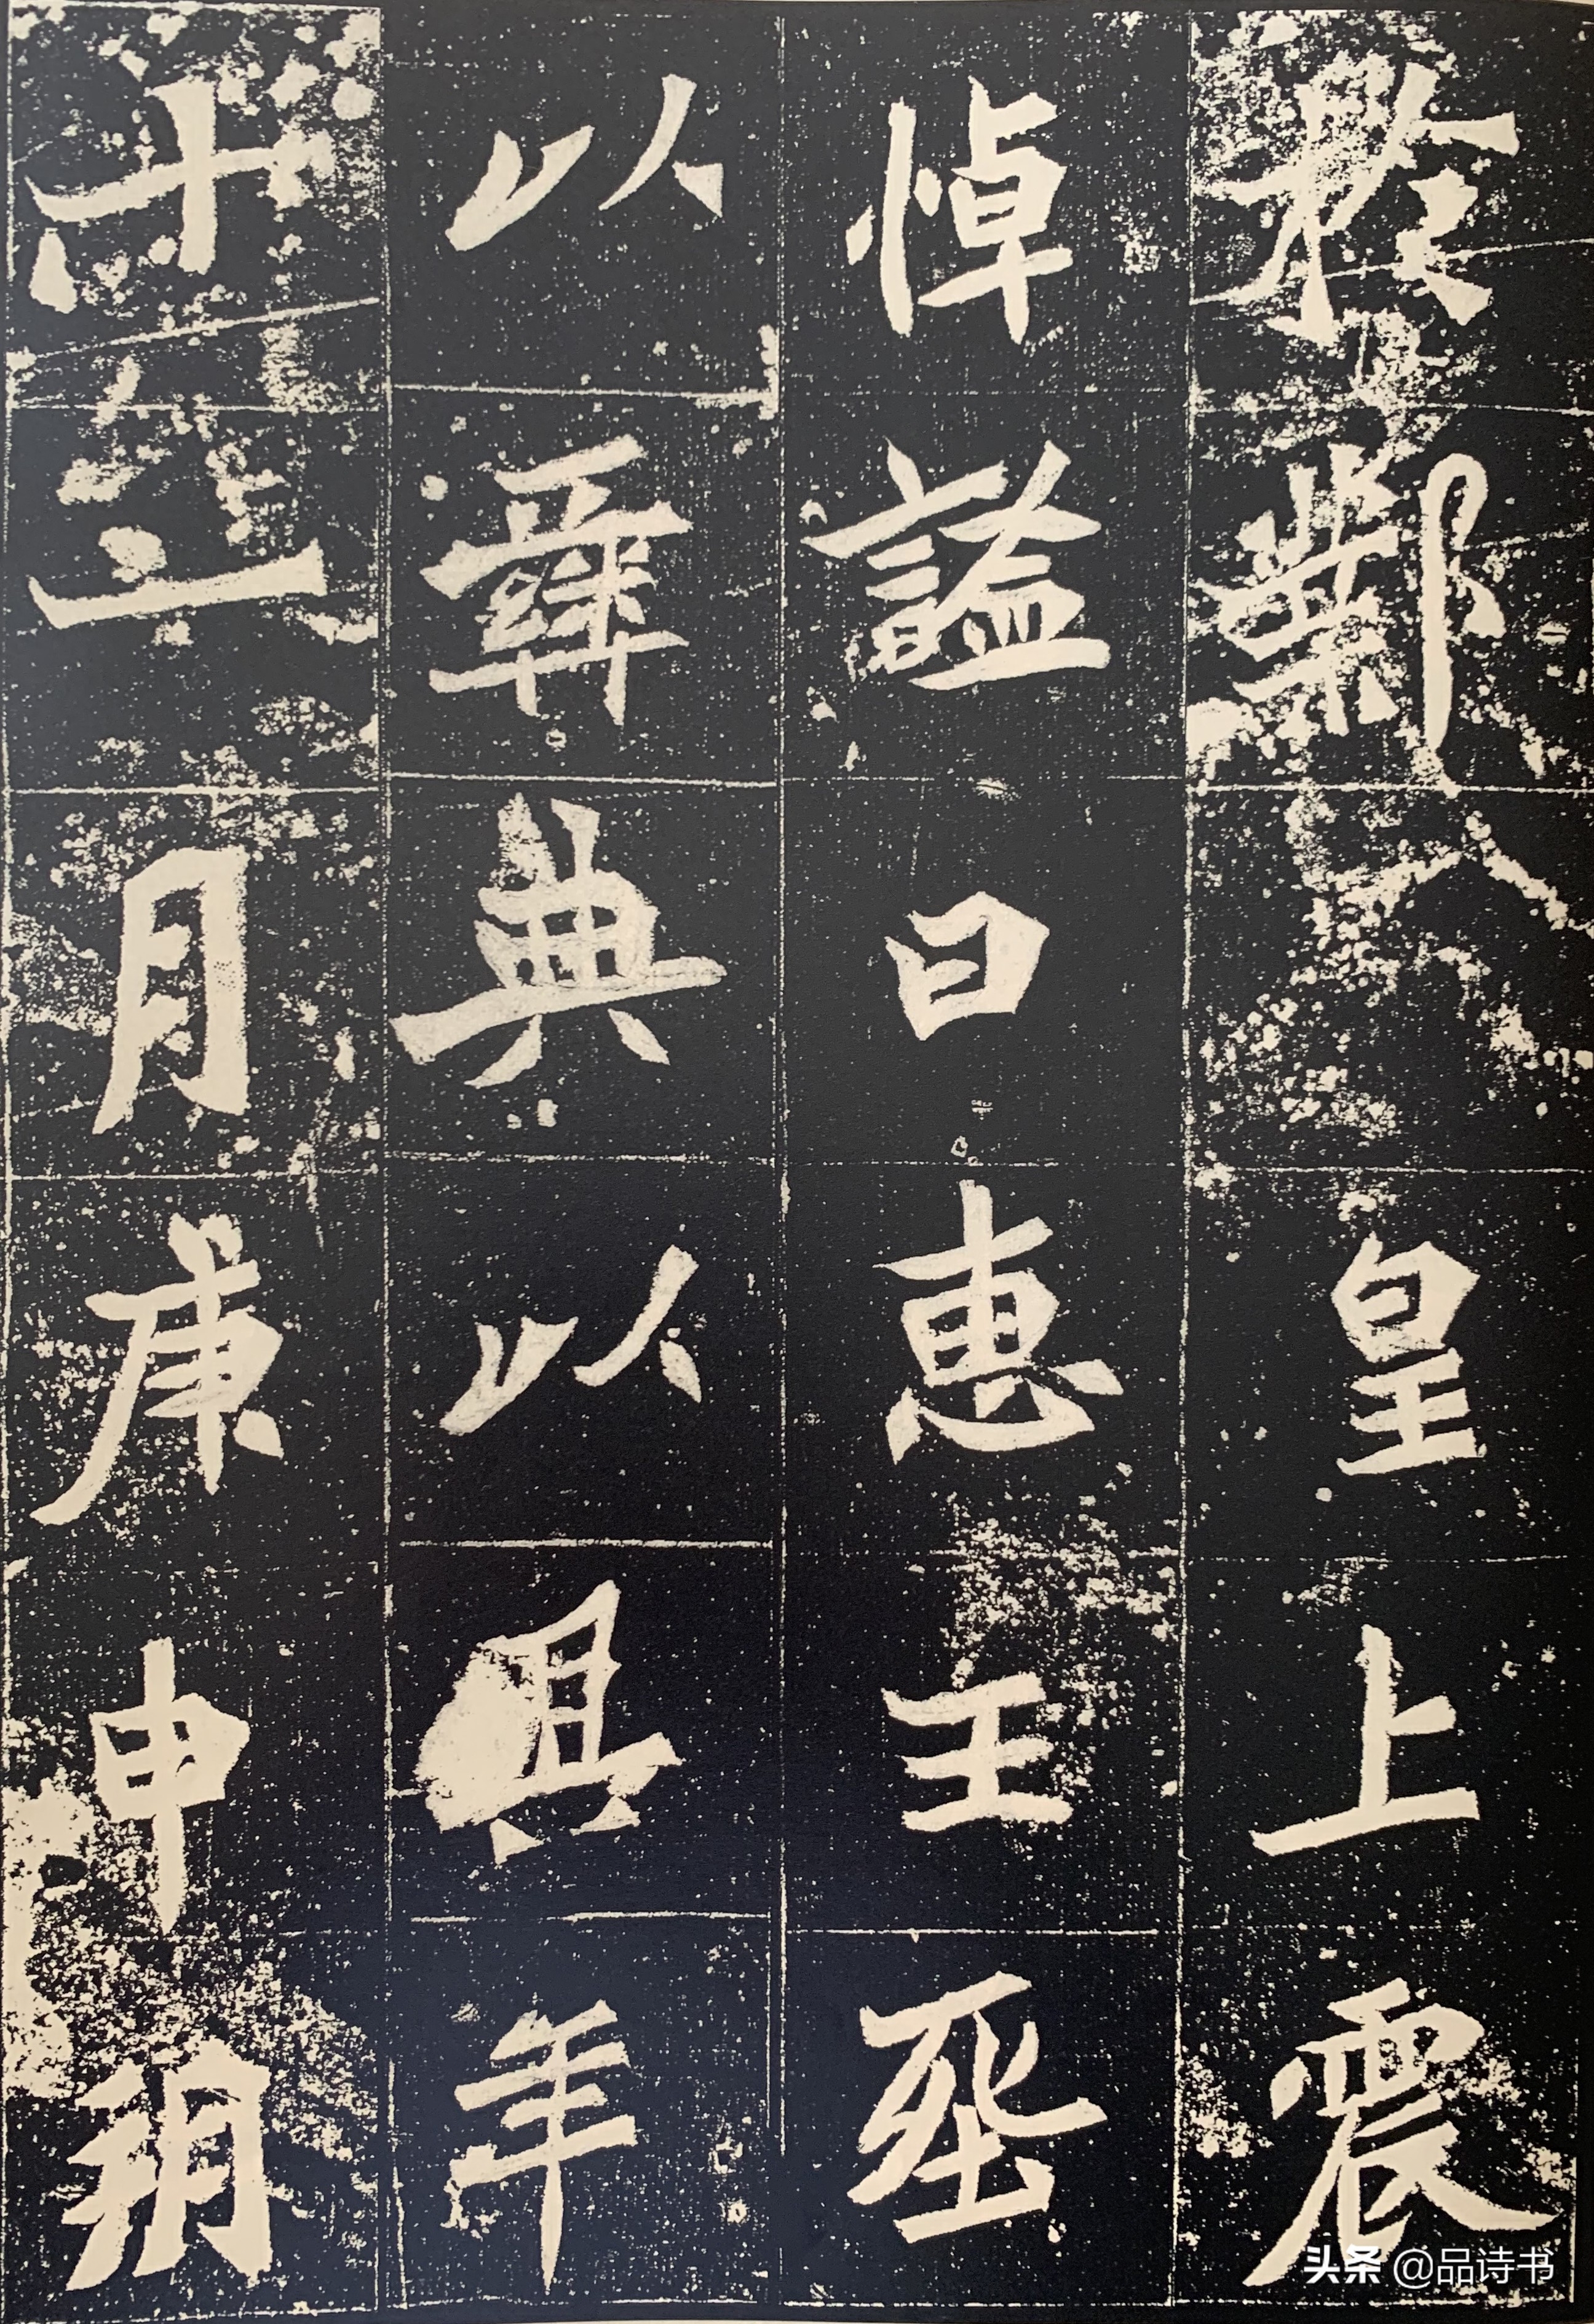 於鄴皇上震
悼謚曰惠王葬
以彝典以其年
十二月庚申朔
头条 @品诗书